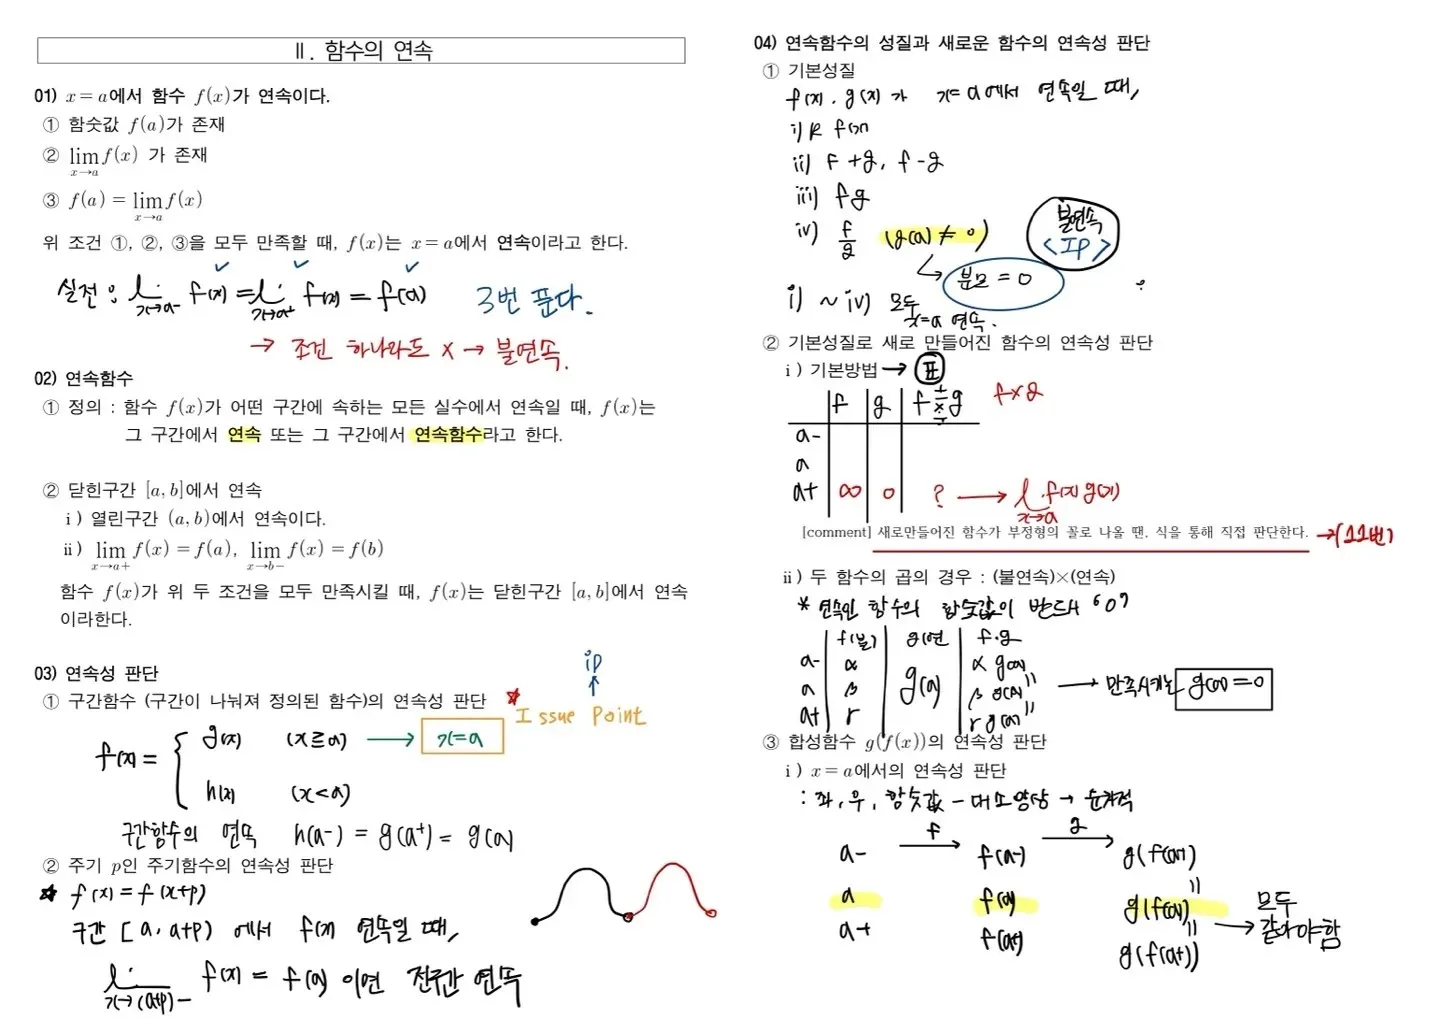 Ⅱ. 함수의 연속
01) x = a에서 함수 f(x)가 연속이다.
① 함숫값 f(a)가 존재
② lim f(x) 가 존재
x→a
③ f(a) = lim f(x)
x→a
위 조건 ①, ②, ③을 모두 만족할 때, f(x)는 x = a에서 연속이라고 한다.
실전 : lim f(x) = lim f(x) = f(a) 3번 푼다.
x→a- x→a+
→ 조건 하나라도 X → 불연속.
02) 연속함수
① 정의 : 함수 f(x)가 어떤 구간에 속하는 모든 실수에서 연속일 때, f(x)는
그 구간에서 연속 또는 그 구간에서 연속함수라고 한다.
② 닫힌구간 [a, b]에서 연속
ⅰ) 열린구간 (a, b)에서 연속이다.
ⅱ) lim f(x) = f(a), lim f(x) = f(b)
x→a+ x→b-
함수 f(x)가 위 두 조건을 모두 만족시킬 때, f(x)는 닫힌구간 [a, b]에서 연속
이라한다.
03) 연속성 판단
iP
↑
① 구간함수 (구간이 나눠져 정의된 함수)의 연속성 판단
☆ Issue Point
f(x) = { g(x) (x≥a) → x=a
h(x) (x<a)
구간함수의 연속 h(a-) = g(a+) = g(a)
② 주기 p인 주기함수의 연속성 판단
☆ f(x) = f(x+p)
구간 [a, a+p) 에서 f(x) 연속일 때,
lim f(x) = f(a) 이면 전구간 연속
x→(a+p)-
04) 연속함수의 성질과 새로운 함수의 연속성 판단
① 기본성질
f(x), g(x) 가 x=a에서 연속일 때,
i) k f(x)
ii) f+g, f-g
iii) fg
iv) f/g (g(a) ≠ 0)
불연속
<IP>
↳ 분모 = 0
i) ~ iv) 모두
x=a 연속.
② 기본성질로 새로 만들어진 함수의 연속성 판단
ⅰ) 기본방법 → 표
f g f ± × ÷ g f×g
a-
a
a+ ∞ 0 ? → lim f(x) g(x)
x→a
[comment] 새로만들어진 함수가 부정형의 꼴로 나올 땐, 식을 통해 직접 판단한다. → (11번)
ⅱ) 두 함수의 곱의 경우 : (불연속)×(연속)
* 연속인 함수의 함숫값이 반드시 "0"
f(불) g(연 f·g
a- α g(a) α g(a)
a β β g(a) → 만족시키는 g(a) = 0
a+ r r g(a)
③ 합성함수 g(f(x))의 연속성 판단
ⅰ) x = a에서의 연속성 판단
: 좌, 우, 함숫값 - 대소양상 → 순차적
f g
a- → f(a-) → g(f(a-))
a f(a) g(f(a)) → 모두
같아야함
a+ f(a+) g(f(a+))